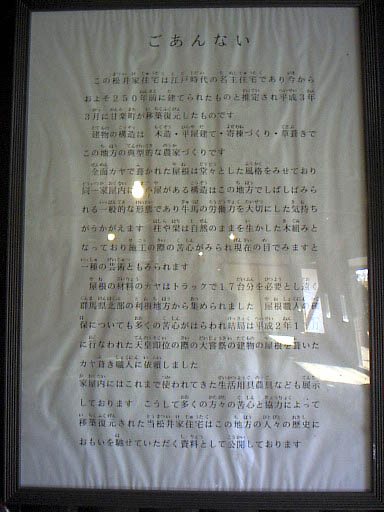 ごあんない
この松井家住宅は江戸時代の名主住宅であり今から
およそ250年前に建てられたものと推定され平成3年
3月に甘楽町が移築復元したものです
建物の構造は 木造・平屋建て・寄棟づくり・草葺きで
この地方の典型的な農家づくりです
全面カヤで葺かれた屋根は堂々とした風格をみせており
同一家屋内に 房がある構造はこの地方でしばしばみら
れる一般的な形態であり牛馬の労働力を大切にした気持ち
がうかがえます 柱や梁は自然のままを生かした木組みと
なっており施工の際の苦心がみられ現在の目でみますと
一種の芸術ともみられます
屋根の材料のカヤはトラックで17台分を必要とし遠く
群馬県北部の利根地方から集められました 屋根職人の確
保についても多くの苦心がはらわれ結局は平成2年11
に行なわれた天皇即位の際の大嘗祭の建物の屋根を葺いた
カヤ葺き職人に依頼しました
家屋内にはこれまで使われてきた生活用具農具なども展示
しております こうして多くの方々の苦心と協力によって
移築復元された当松井家住宅はこの地方の人々の歴史に
おもいを馳せていただく資料として公開しております